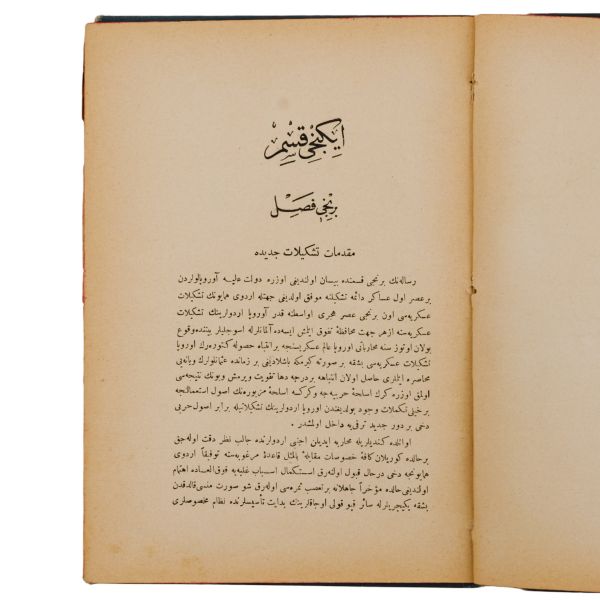 ایکنجی قسم
برنجی فصل
مقدمات تشکیلات جدیده
رساله‌نك برنجی قسمنده بیان اولندیغی اوزره دولت علیه آوروپالولردن
برعصر اول عساکر دائمه تشکیلنه موفق اولدیغی جهتله اردوی همایونك تشکیلات
عسکریه‌سی اون برنجی عصر هجری اواسطنه قدر آوروپا اردولرینك تشکیلات
عسکریه‌سنه ازهر جهت محافظهٔ تفوق ایتمش ایسه‌ده آلمانلرله اسوجلیلر بیننده وقوع
بولان اوتوز سنه محارباتی اوروپا عالم عسکریسنجه بر انتباه حصوله کتوره‌رك اوروپا
تشکیلات عسکریه‌سی بشقه بر صورته کیرمکه باشلادیغی بر زمانده عثمانلولرك ویانه‌یی
محاصره ایتملری حاصل اولان انتباهه بردرجه دها تقویت ویرمش وبونك نتیجه‌سی
اولمق اوزره كرك اسلحهٔ حربیه‌جه وکرکسه اسلحهٔ مزبوره‌نك اصول استعمالنجه
برخیلی تکملات وجود بولدیغندن اوروپا اردولرینك تشکیلاتیله برابر اصول حربی
دخی بر دور جدید ترقی‌یه داخل اولمشدر .
اوائلده کندیلریله محاربه ایدیلن اجنبی اردولرنده جالب نظر دقت اوله‌جق
برحالده کوریلان کافهٔ خصوصات مقابلهٔ بالمثل قاعدهٔ مرغوبه‌سنه توفیقاً اردوی
همایونجه دخی درحال قبول اولنه‌رق استکمال اسباب غلبه‌یه فوق‌العاده اهتمام
اولندیغی حالده مؤخراً جاهلانه برتعصب ثمره‌سی اوله‌رق شو صورت منسی قالدقدن
بشقه یکیچریلرله سائر قپو قولی اوجاقلرینك بدایت تأسیسلرنده نظام مخصوصلری